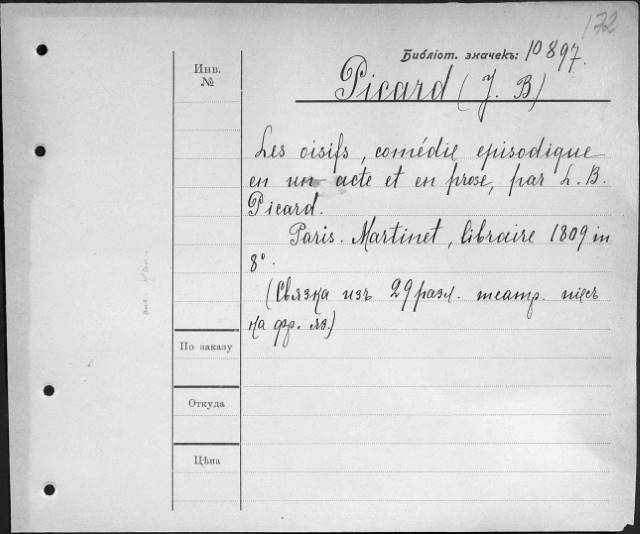 172
Библіот. значекъ: 10897.
Инв.
№
Picard (J. B)
Les oisifs, comédie episodique
en un acte et en prose, par L. B.
Picard.
Paris. Martinet, libraire 1809 in
8°.
(Связка изъ 29 разл. театр. піесъ
на фр. яз.)
По заказу
Откуда
Цѣна